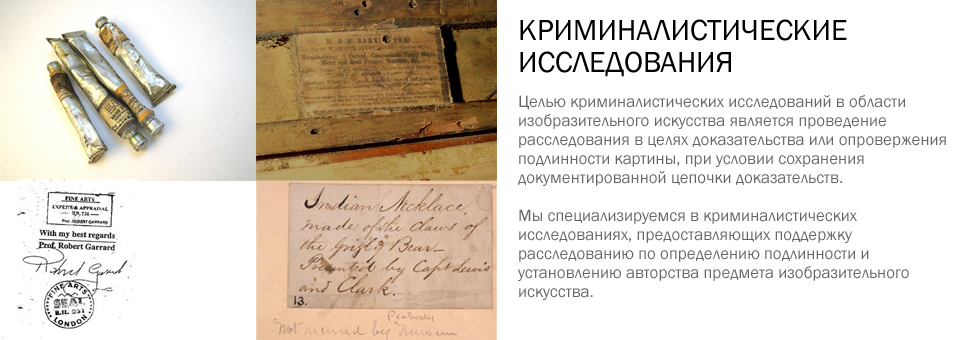 КРИМИНАЛИСТИЧЕСКИЕ
ИССЛЕДОВАНИЯ
Целью криминалистических исследований в области
изобразительного искусства является проведение
расследования в целях доказательства или опровержения
подлинности картины, при условии сохранения
документированной цепочки доказательств.
Мы специализируемся в криминалистических
исследованиях, предоставляющих поддержку
расследованию по определению подлинности и
установлению авторства предмета изобразительного
искусства.
FINE ARTS
EXPERT & APPRAISAL
Prof. ROBERT GARRARD
With my best regards
Prof. Robert Garrard
FINE ARTS
SEAL
R.N. 231
LONDON
Indian Necklace,
made of the claws of
the Grizly Bear—
Presented by Capt Lewis
and Clark.
13.
Peabody
Not owned by Museum